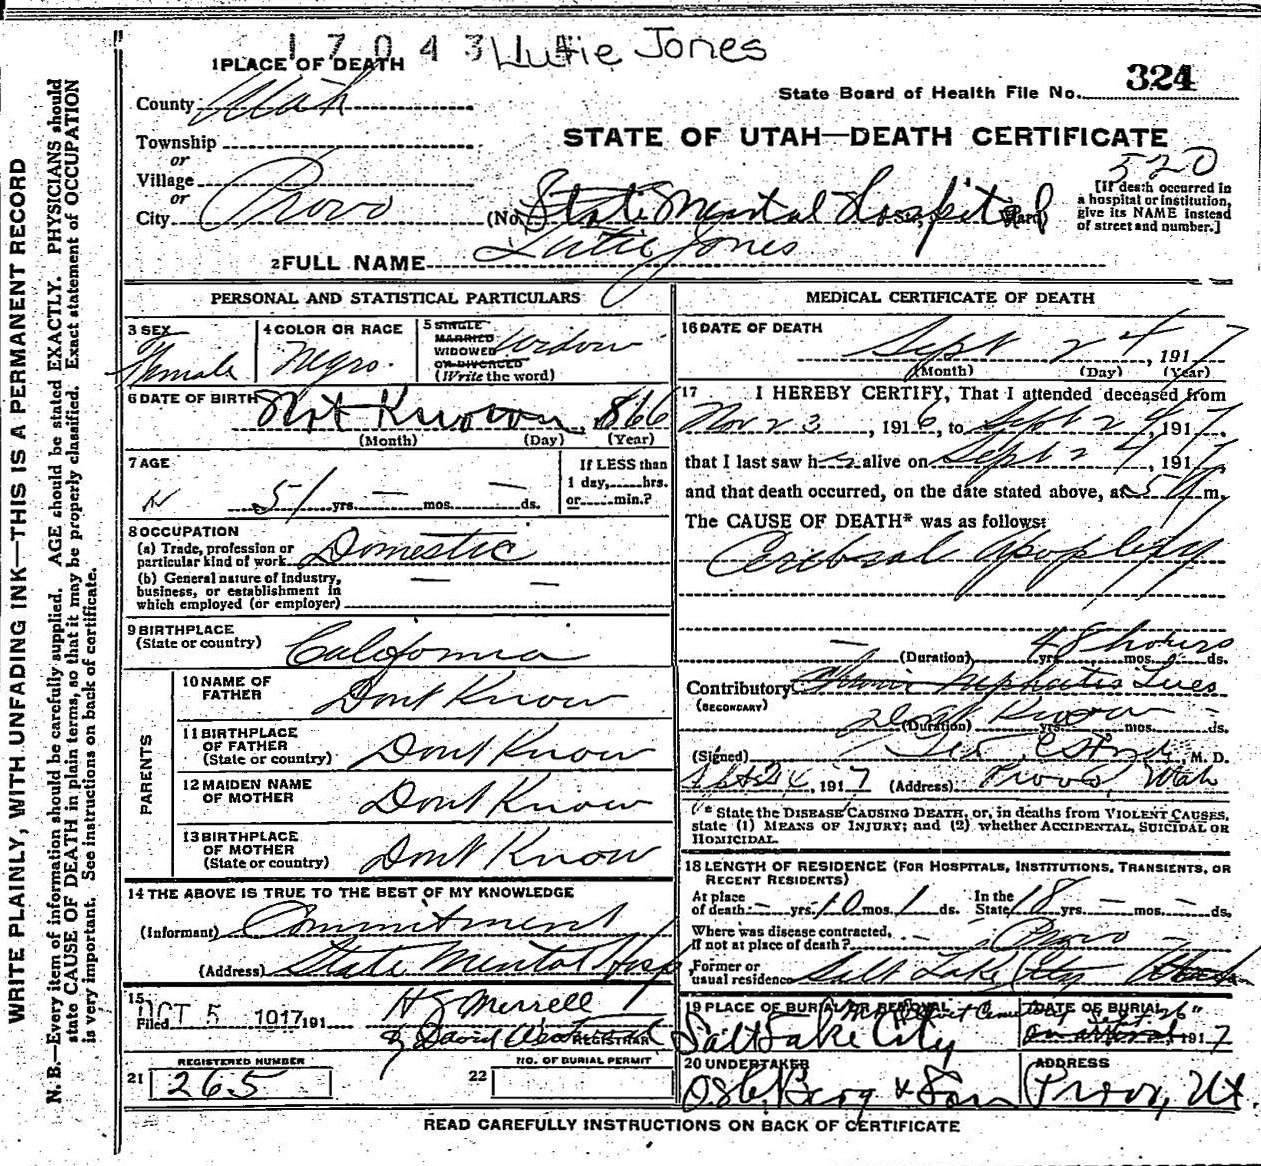 17043 Lutie Jones
1 PLACE OF DEATH
County Utah
State Board of Health File No. 324
Township
or
Village
or
City Provo
STATE OF UTAH—DEATH CERTIFICATE
520
(No. State Mental Hospital St., Ward)
[If death occurred in
a hospital or institution,
give its NAME instead
of street and number.]
2 FULL NAME Lutie Jones
PERSONAL AND STATISTICAL PARTICULARS
3 SEX
Female
4 COLOR OR RACE
Negro.
5 SINGLE
MARRIED
WIDOWED
OR DIVORCED
(Write the word)
Widow
6 DATE OF BIRTH Not Known, 1866
(Month) (Day) (Year)
7 AGE
51 yrs. — mos. — ds.
If LESS than
1 day, hrs.
or min.?
8 OCCUPATION
(a) Trade, profession or
particular kind of work Domestic
(b) General nature of industry,
business, or establishment in
which employed (or employer)
9 BIRTHPLACE
(State or country) California
PARENTS
10 NAME OF
FATHER Dont Know
11 BIRTHPLACE
OF FATHER
(State or country) Dont Know
12 MAIDEN NAME
OF MOTHER Dont Know
13 BIRTHPLACE
OF MOTHER
(State or country) Dont Know
14 THE ABOVE IS TRUE TO THE BEST OF MY KNOWLEDGE
(Informant) Commitment
(Address) State Mental Hosp
15
Filed OCT 5 1917 191 H J Merrell
REGISTRAR
By David
REGISTERED NUMBER
21 265
NO. OF BURIAL PERMIT
22
MEDICAL CERTIFICATE OF DEATH
16 DATE OF DEATH
Sept 24, 1917
(Month) (Day) (Year)
17 I HEREBY CERTIFY, That I attended deceased from
Nov 23, 1916, to Sept 24, 1917.
that I last saw her alive on Sept 24, 1917
and that death occurred, on the date stated above, at 5 m.
The CAUSE OF DEATH* was as follows:
Cerebral Apoplexy
— (Duration) 48 hours yrs. mos. ds.
Contributory Nephritis Lues
(SECONDARY)
Dont Know (Duration) yrs. — mos. — ds.
(Signed) , M. D.
Sept 24, 1917 (Address) Provo, Utah
(* State the DISEASE CAUSING DEATH, or, in deaths from VIOLENT CAUSES,
state (1) MEANS OF INJURY; and (2) whether ACCIDENTAL, SUICIDAL OR
HOMICIDAL.
18 LENGTH OF RESIDENCE (FOR HOSPITALS, INSTITUTIONS, TRANSIENTS, OR
RECENT RESIDENTS)
At place
of death — yrs. 10 mos. 1 ds. In the
State 18 yrs. — mos. — ds.
Where was disease contracted,
if not at place of death? Provo
Former or
usual residence Salt Lake City Utah
19 PLACE OF BURIAL OR REMOVAL
Salt Lake City
DATE OF BURIAL
Sept. 26" 1917
20 UNDERTAKER
Berg & Son
ADDRESS
Provo, Ut.
READ CAREFULLY INSTRUCTIONS ON BACK OF CERTIFICATE
WRITE PLAINLY, WITH UNFADING INK—THIS IS A PERMANENT RECORD
N. B.—Every item of information should be carefully supplied. AGE should be stated EXACTLY. PHYSICIANS should
state CAUSE OF DEATH in plain terms, so that it may be properly classified. Exact statement of OCCUPATION
is very important. See instructions on back of certificate.